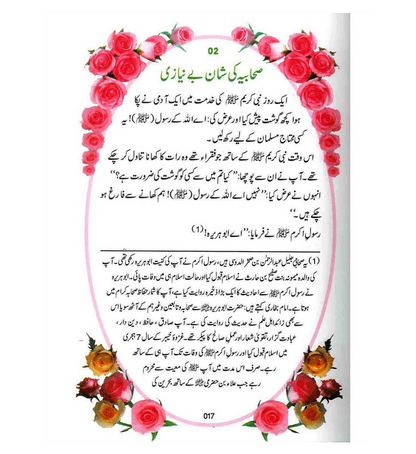 02
صحابیہ کی شانِ بے نیازی
ایک روز نبی کریم ﷺ کی خدمت میں ایک آدمی نے پکا
ہوا کچھ گوشت پیش کیا اور عرض کی: اے اللہ کے رسول (ﷺ)! یہ
کسی محتاج مسلمان کے لیے رکھ لیں۔
اس وقت نبی کریم ﷺ کے ساتھ جو فقراء تھے وہ رات کا کھانا تناول کر چکے
تھے۔ آپ نے ان سے پوچھا: ’’کیا تم میں سے کسی کو گوشت کی ضرورت ہے؟‘‘
انہوں نے عرض کیا: ’’نہیں اے اللہ کے رسول (ﷺ)! ہم کھانے سے فارغ ہو
چکے ہیں۔‘‘
رسولِ اکرم ﷺ نے فرمایا: ’’اے ابو ہریرہ! (1)
(1) یہ صحابی جلیل عبدالرحمٰن بن صخر الدوسی ہیں، رسول اکرم نے آپ کی کنیت ابو ہریرہ رکھی تھی۔ آپ
کی والدہ میمونہ بنت صفیح بن حارث نے اسلام قبول کیا اور حالت اسلام ہی میں وفات پائی۔ ابو ہریرہ
نے رسول اکرم ﷺ سے احادیث کا ایک بڑا ذخیرہ روایت کیا ہے، آپ کا شمار حفاظ صحابہ کرام میں
ہوتا ہے۔ امام بخاری کہتے ہیں: حضرت ابو ہریرہ ؓ سے صحابہ و تابعین وغیرہم کے آٹھ سو یا اس
سے بھی زائد اہل علم نے حدیث کی روایت کی ہے۔ آپ صادق، حافظ، دین دار،
عبادت گزار، تقویٰ شعار اور عمل صالح کا پیکر تھے۔ غزوۂ خیبر کے سال 7 ہجری
میں اسلام قبول کیا اور رسول اکرم ﷺ کی وفات تک آپ ہی کے ساتھ
رہے۔ صرف اس مدت میں آپ ﷺ کی معیت سے محروم
رہے جب علاء بن حضرمی ؓ کے ساتھ بحرین کی
017